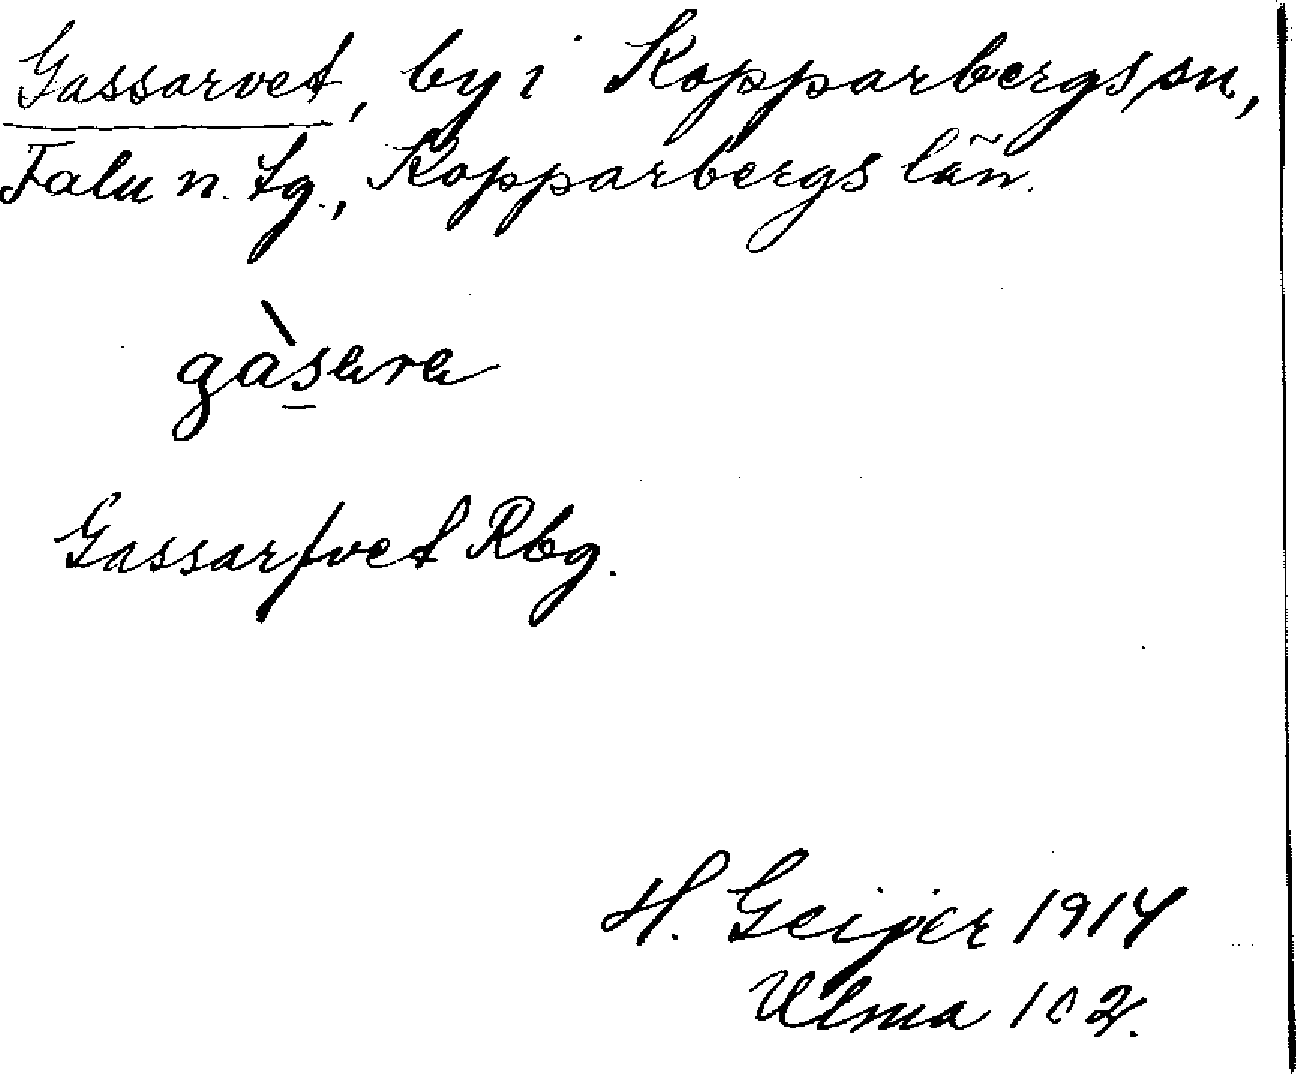 Gassarvet, by i Kopparbergs sn,
Falu n. tg., Kopparbergs län.
gàsara
Gassarfvet Rbg.
H. Geijer 1914
Ulma 102.